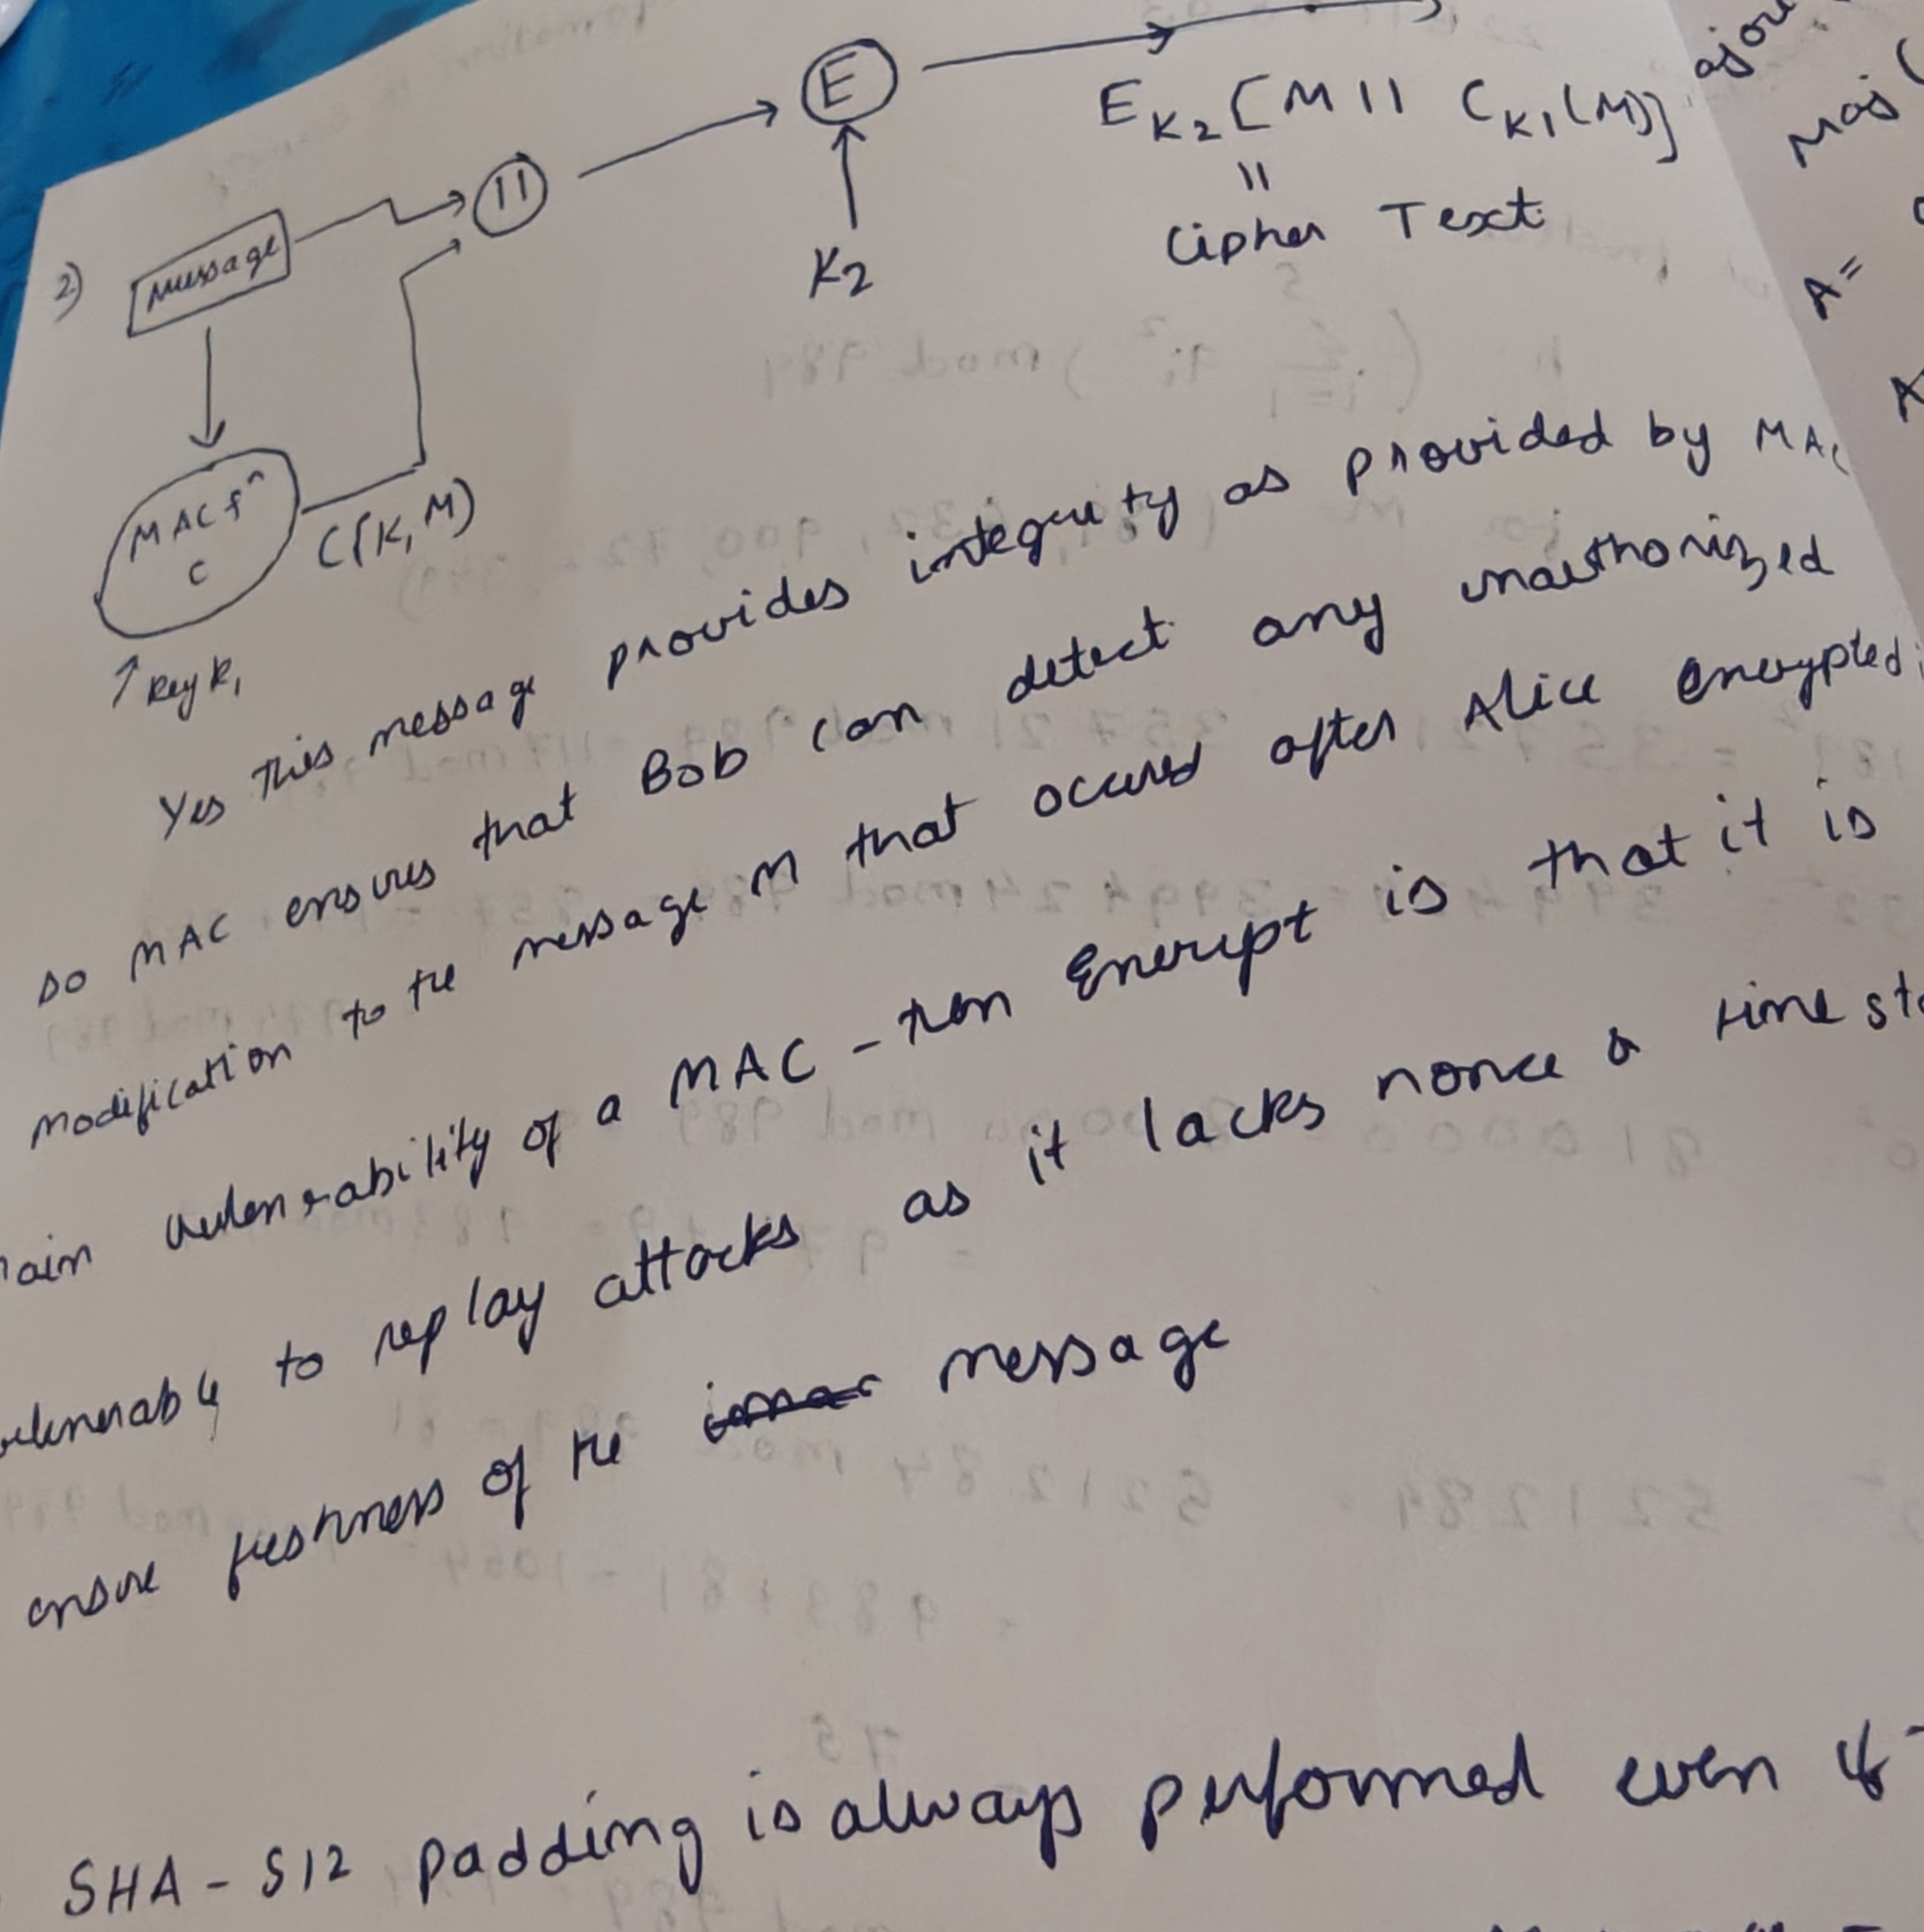 E
E K2 [M || C K1 (M)]
||
Cipher Text
||
K2
2)
Message
MAC fn
C
C(K, M)
↑ Key K1
Yes this message provides integrity as provided by MAC
so MAC ensures that Bob can detect any unauthorized
modification to the message M that occured after Alice encrypted
main vulnerability of a MAC - then Encrypt is that it is
vulnerable to replay attacks as it lacks nonce a time
ensure freshness of the message
SHA - 512 padding is always performed even if